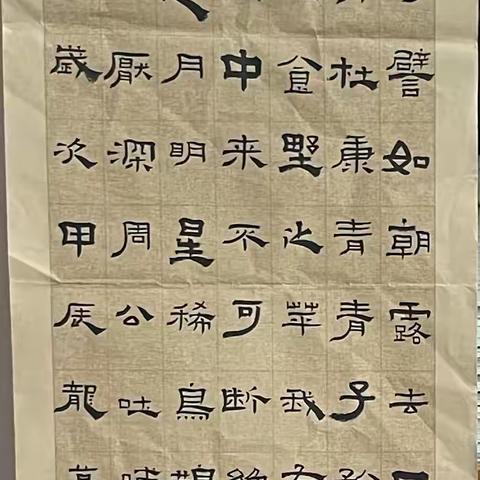 譬如朝露去
杜康青青子
食野之苹我有
中来不可断
月明星稀鳥鵲
厭深周公吐哺
歲次甲辰龍